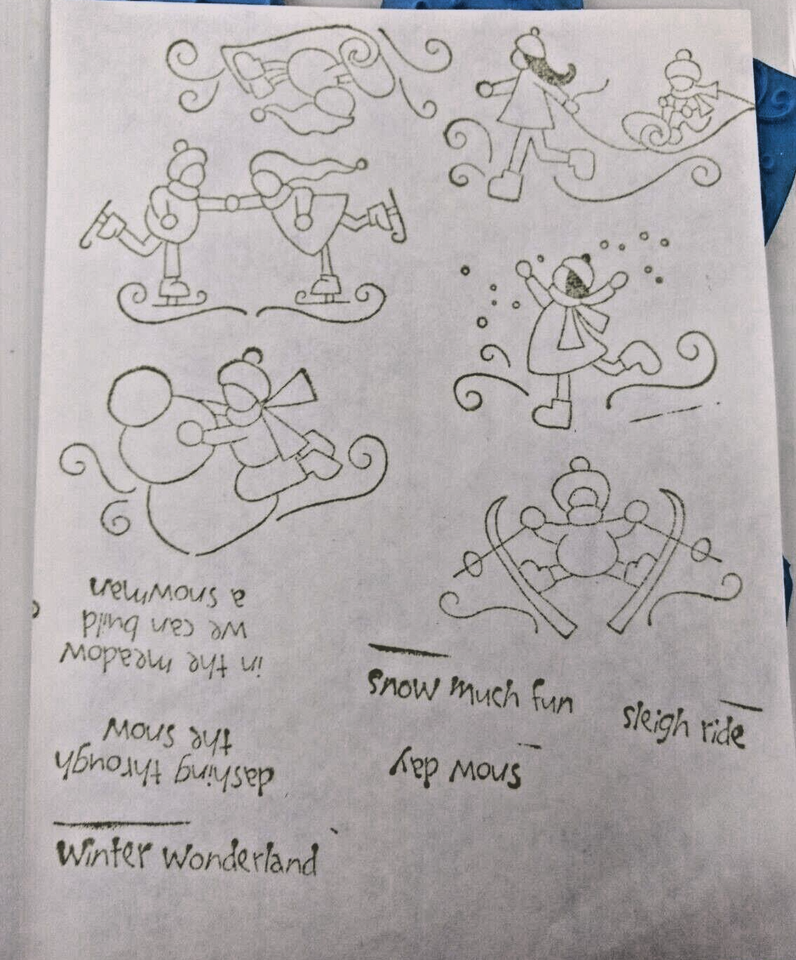 in the meadow
we can build
a snowman
snow much fun
sleigh ride
dashing through
the snow
snow day
winter wonderland